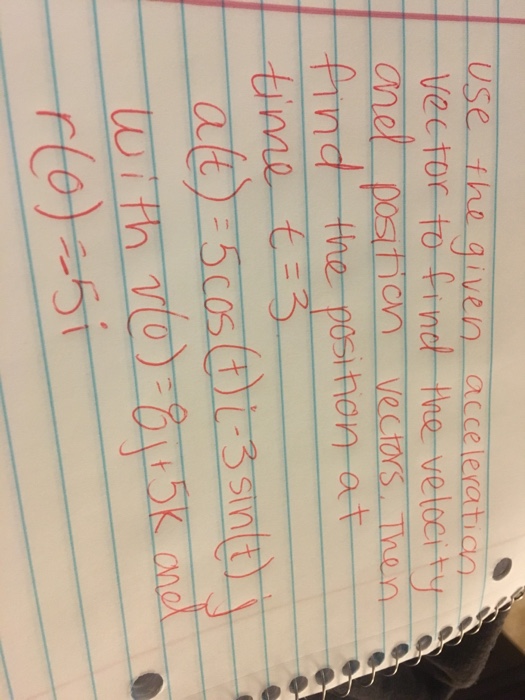 use the given acceleration
vector to find the velocity
and position vectors. Then
find the position at
time t=3
a(t)=5cos(t)i-3sin(t)j
with v(0)=8j+5k and
r(0)=-5i